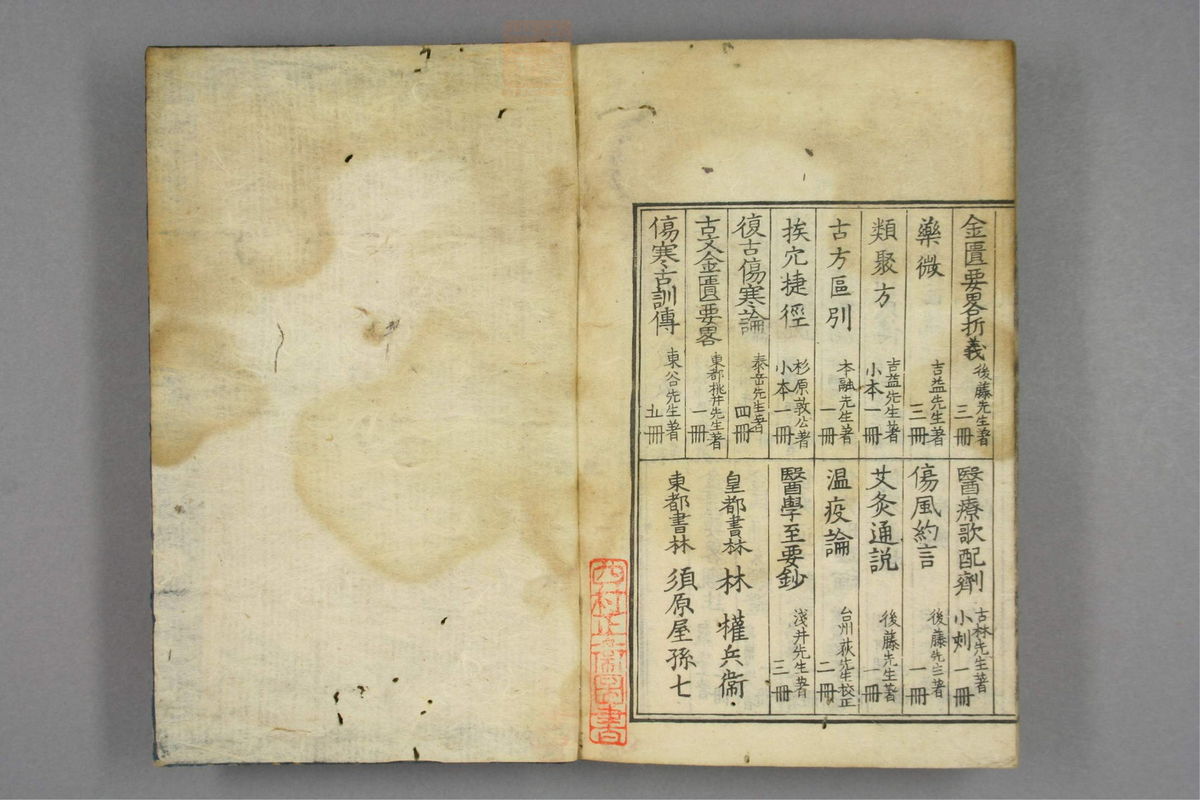 金匱要畧折義 後藤先生著 三冊
藥徴 吉益先生著 三冊
類聚方 吉益先生著 小本一冊
古方區別 本融先生著 一冊
挨穴捷徑 杉原敦公著 小本一冊
復古傷寒論 泰岳先生著 四冊
古文金匱要畧 東都桃井先生著 一冊
傷寒古訓傳 東谷先生著 五冊
醫療歌配劑 古林先生著 小刻一冊
傷風約言 後藤先生著 一冊
艾灸通説 後藤先生著 一冊
温疫論 台州荻先生校正 二冊
醫學至要鈔 淺井先生著 三冊
皇都書林 林 權兵衞
東都書林 須原屋孫七